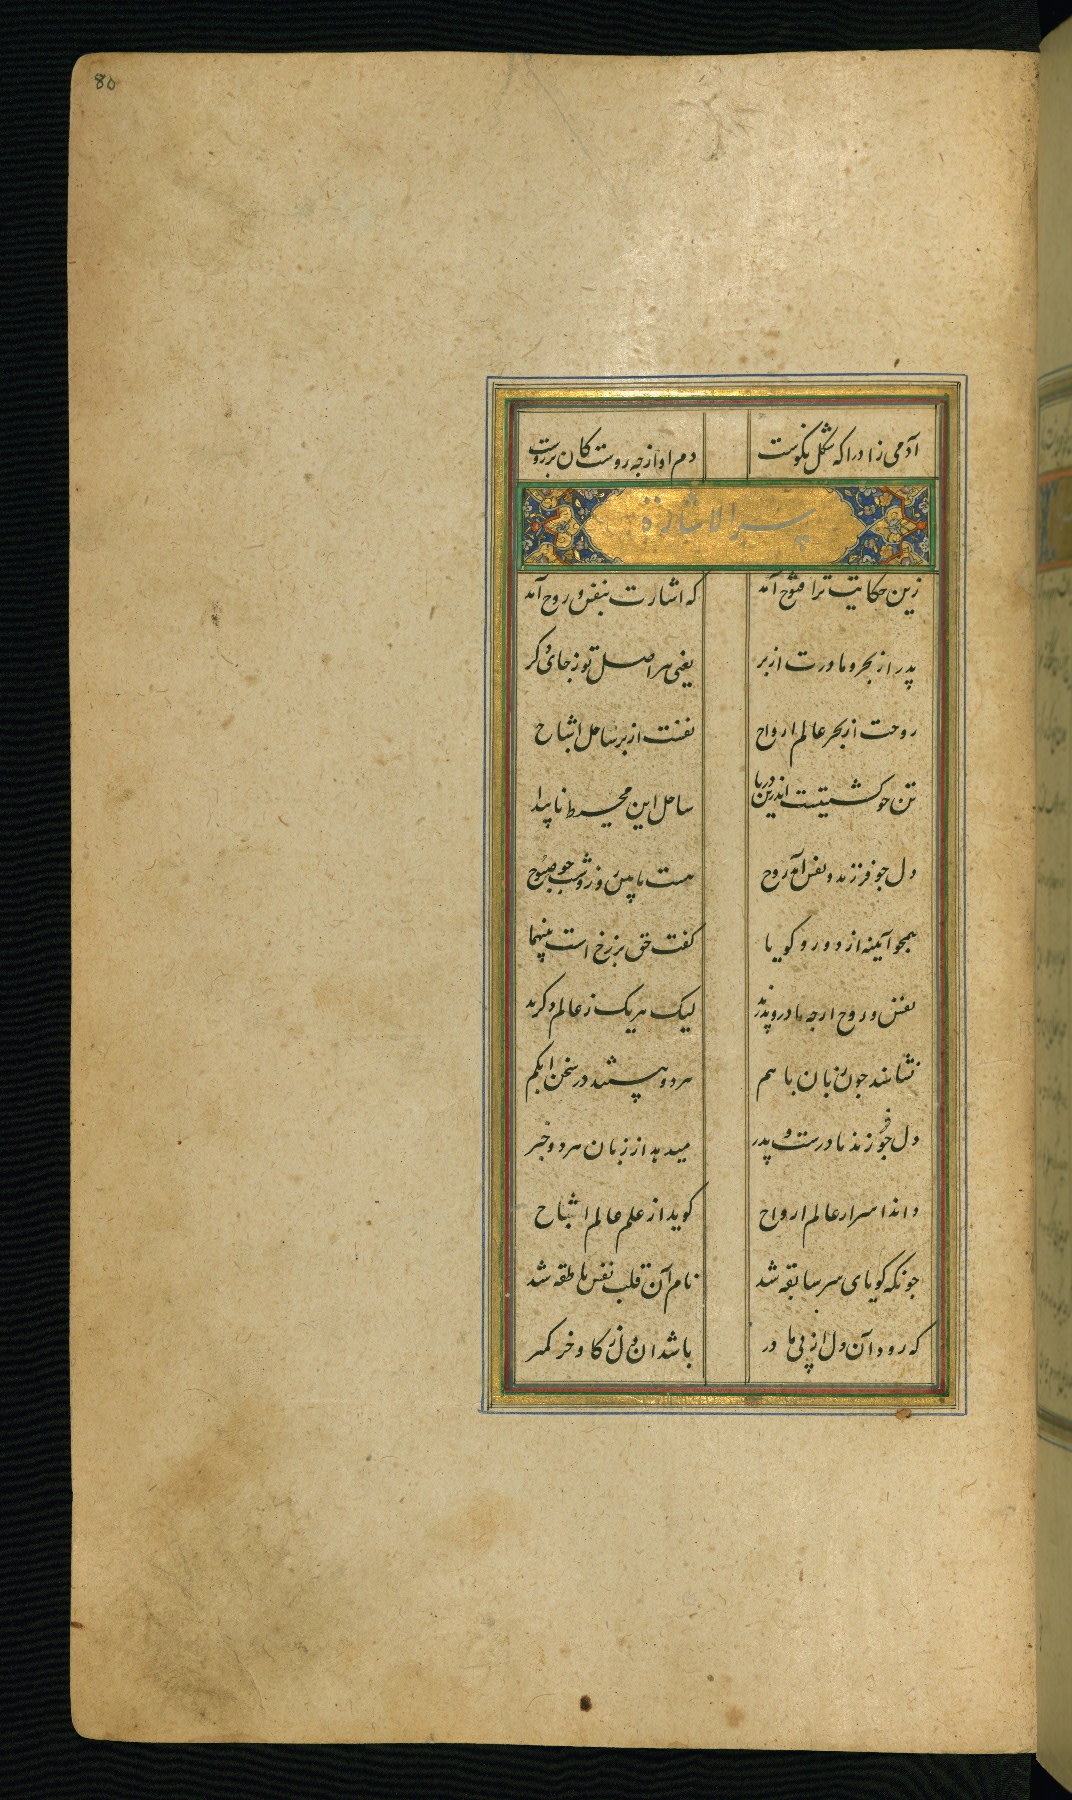 80
آدمی زاد را که شکل نکوست دم او از چه روست کان بر روست
سر الاشارة
زین حکایت ترا فتوح آمد که اشارت بنفس و روح آمد
پدر از بحر و مادرت از بر یعنی هر اصل تو ز جای دکر
روحت از بحر عالم ارواح نفست از بر ساحل اشباح
تن جو کشتیست اندرین دریا ساحل این محیط ناپیدا
دل جو فرزند و نفس آمد روح هست ما بین روز و شب جو صبوح
همجو آیینه از دو رو کویا کفت حق برزخ است بینهما
نفس و روح ارجه مادر و پدرند لیک هر یک ز عالم دکرند
نشناسند جون زبان با هم هر دو هستند در سخن ابکم
دل جو فرزند مادرست و پدر میدهد از زبان هر دو خبر
داند اسرار عالم ارواح کوید از علم عالم اشباح
جونکه کویای سر سابقه شد نام آن قلب نفس ناطقه شد
که رود آن دل از پی مادر باشد ان دل ز کاو و خر کمتر